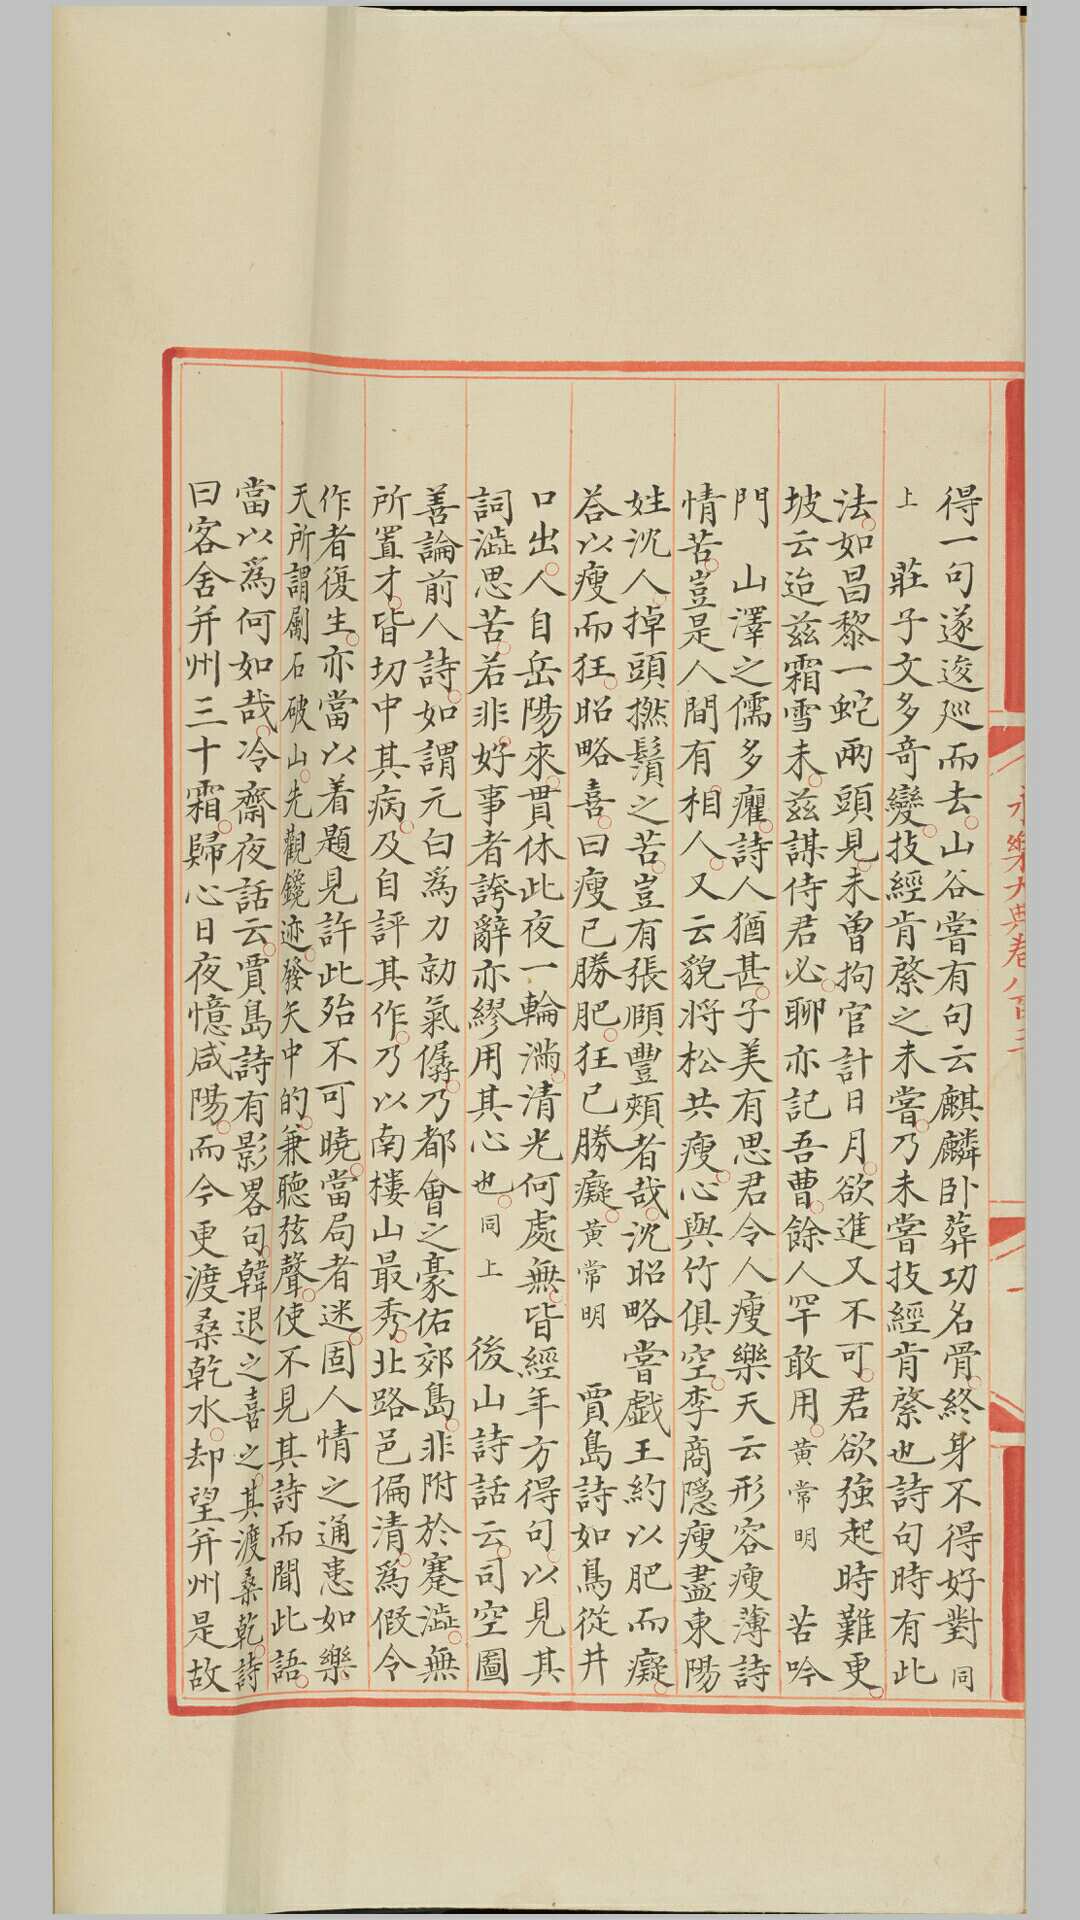 永樂大典卷八百二
得一句遂逡巡而去山谷嘗有句云麒麟卧葬功名骨終身不得好對同
上　莊子文多奇變技經肯綮之未嘗乃未嘗技經肯綮也詩句時有此
法如昌黎一蛇兩頭見未曾拘官計日月欲進又不可君欲強起時難更
坡云迨兹霜雪未兹謀侍君必聊亦記吾曹餘人罕敢用黄常明　苦吟
門　山澤之儒多癯詩人猶甚子美有思君令人瘦樂天云形容瘦薄詩
情苦豈是人間有相人又云貌將松共瘦心與竹俱空李商隱瘦盡東陽
姓沈人掉頭撚鬚之苦豈有張頤豐頰者哉沈昭略嘗戲王約以肥而癡
荅以瘦而狂昭略喜曰瘦已勝肥狂已勝癡黄常明　賈島詩如鳥從井
口出人自岳陽來貫休此夜一輪滿清光何處無皆經年方得句以見其
詞澁思苦若非好事者誇辭亦繆用其心也同上　後山詩話云司空圖
善論前人詩如謂元白爲力勍氣孱乃都會之豪估郊島非附於蹇澁無
所置才皆切中其病及自評其作乃以南樓山最秀北路邑偏清爲假令
作者復生亦當以着題見許此殆不可曉當局者迷固人情之通患如樂
天所謂劚石破山先觀鑱迹發矢中的兼聽弦聲使不見其詩而聞此語
當以爲何如哉冷齋夜話云賈島詩有影畧句韓退之喜之其渡桑乾詩
曰客舍并州三十霜歸心日夜憶咸陽而今更渡桑乾水却望并州是故